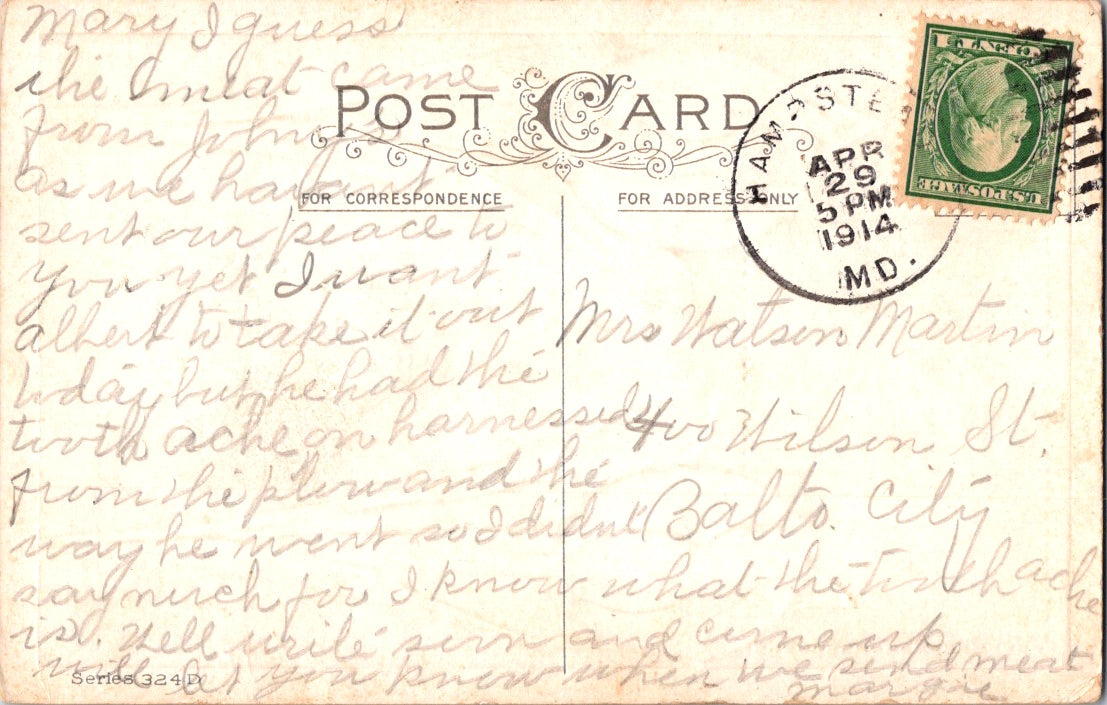 POST CARD
FOR CORRESPONDENCE
FOR ADDRESS ONLY
HAMPSTE
APR
29
5 PM
1914
MD.
U.S. POSTAGE
Mary I guess
the meat came
from John
as we havent
sent our peace to
you yet I want
albert to take it out
today but he had the
tooth ache on harnessed
from the plow and the
way he went so I didnt
say much for I know what the tooth ache
is. Well write soon and come up
will let you know when we send meat
Mrs Watson Martin
400 Wilson St.
Balto. City
Series 324 D